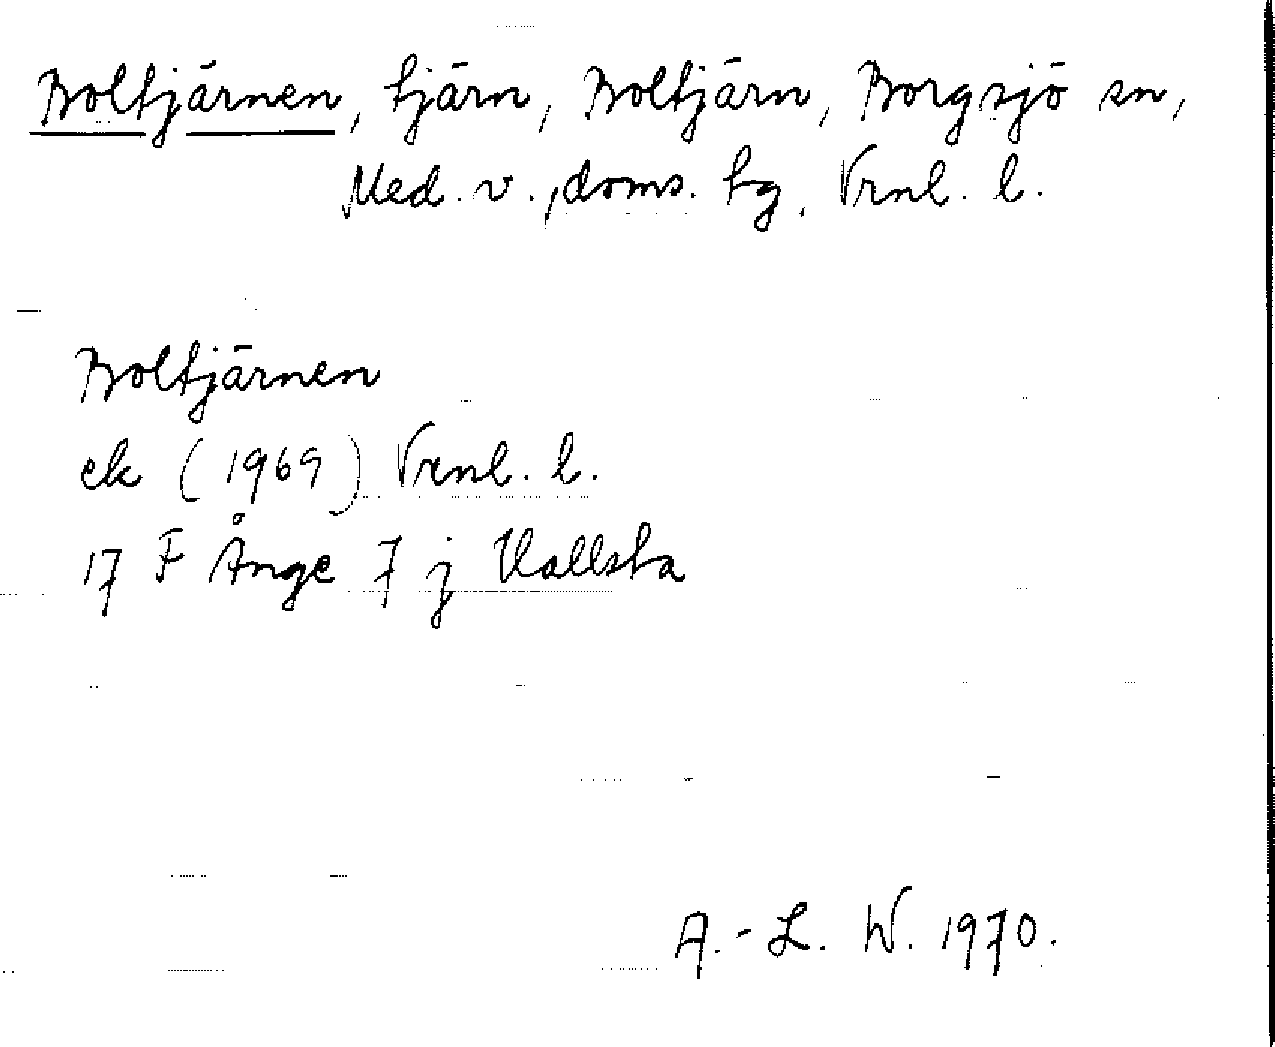 Boltjärnen, tjärn, Boltjärn, Borgsjö sn,
Med. v., doms. hg, Vrnl. l.
Boltjärnen
ek (1969) Vrnl. l.
17 F Ånge 7 j Vallsta
A.-L. W. 1970.